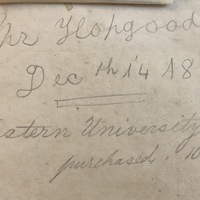 Hopgood
Dec th 14 18
stern University
purchased. 10